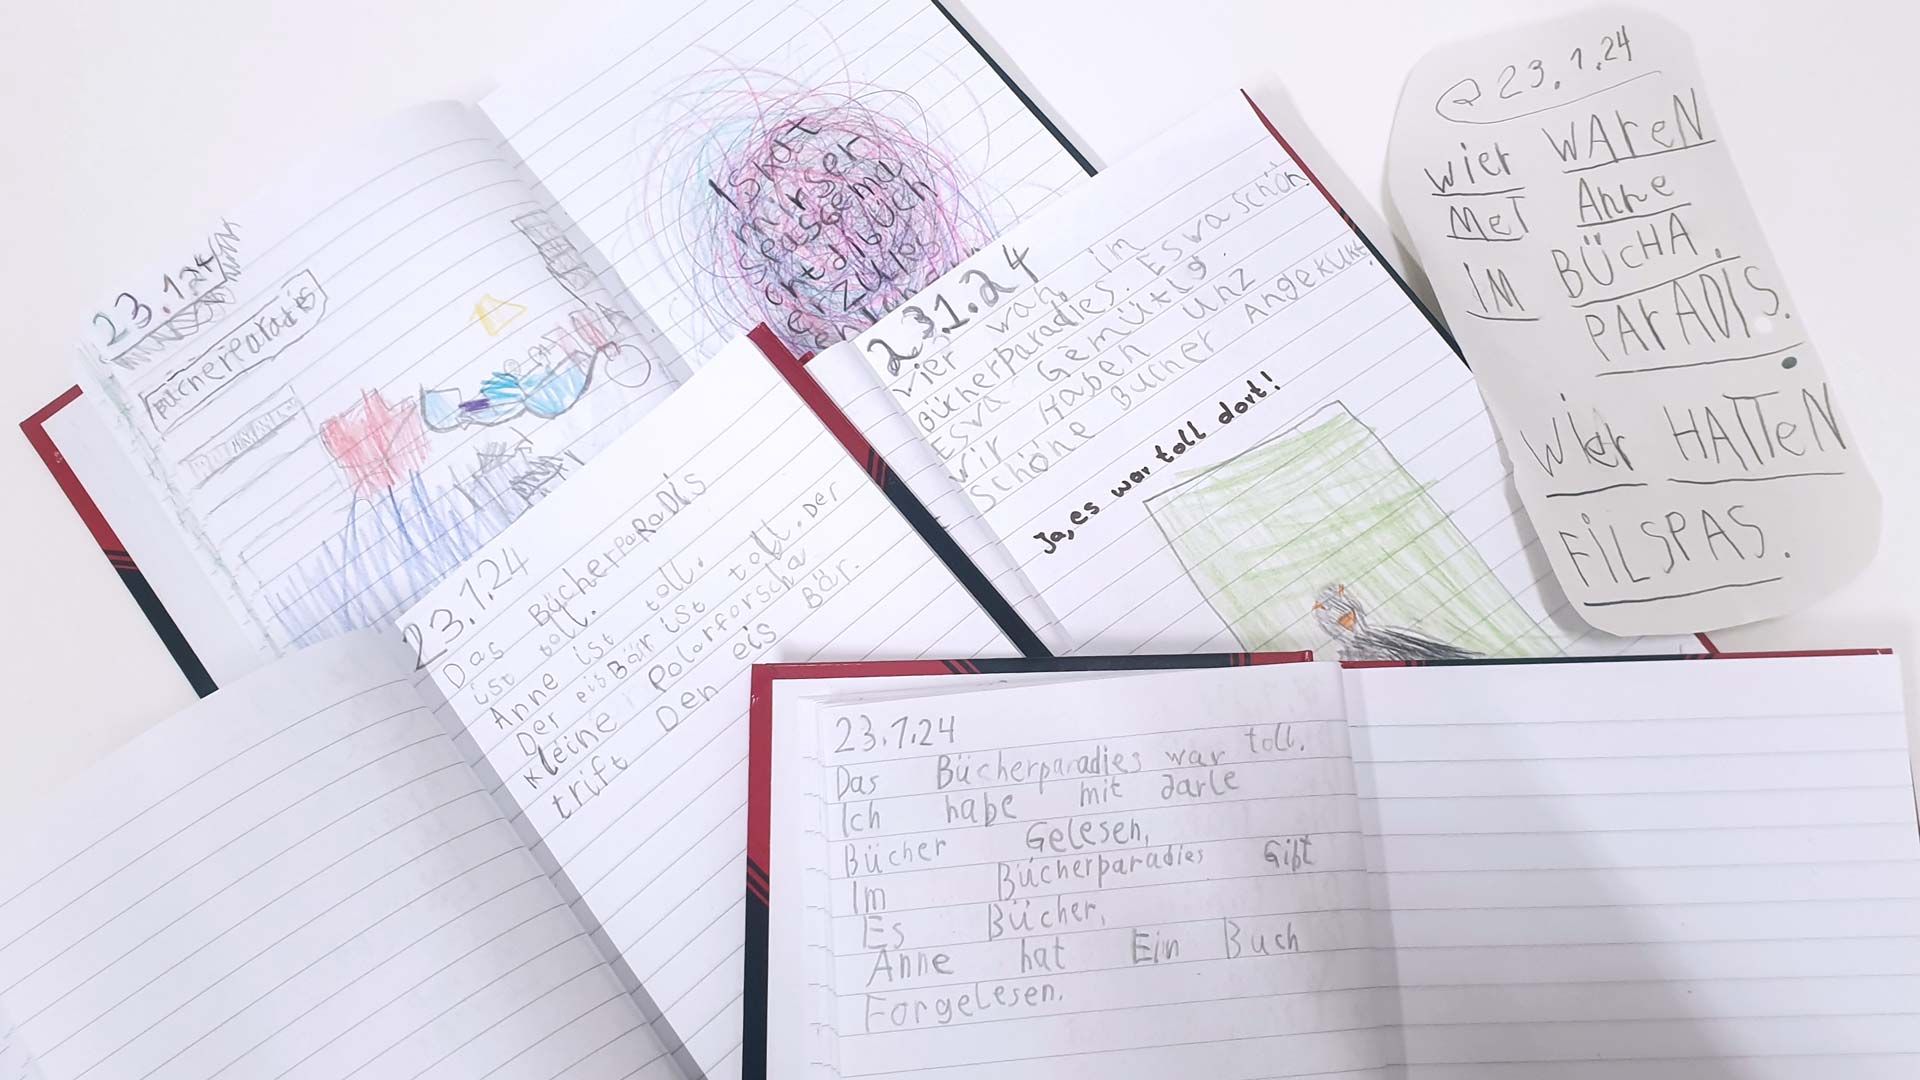 23.1.24
Bücherparadis
Es hat
mir ser
spasgema
cht di büch
er zu les
23.1.24
wier waren im
Bücherparadies. Es wa schön.
Es wa Gemütlig.
wir Haben unz
schöne Bücher Angekukt.
Ja, es war toll dort!
23.1.24
wier WAreN
MeT Anne
IM BÜCHA.
PArADIS.
Wier HATTeN
FiLSPAS.
23.1.24
Das BücherPaRaDis
ist toll. toll.
Anne ist toll. Der
Der eisBär ist toll. Der
kleine Polarforscha
trift Den eis Bär.
23.1.24
Das Bücherparadies war toll.
Ich habe mit Jarle
Bücher Gelesen,
Im Bücherparadies Gibt
Es Bücher,
Anne hat Ein Buch
Forgelesen.